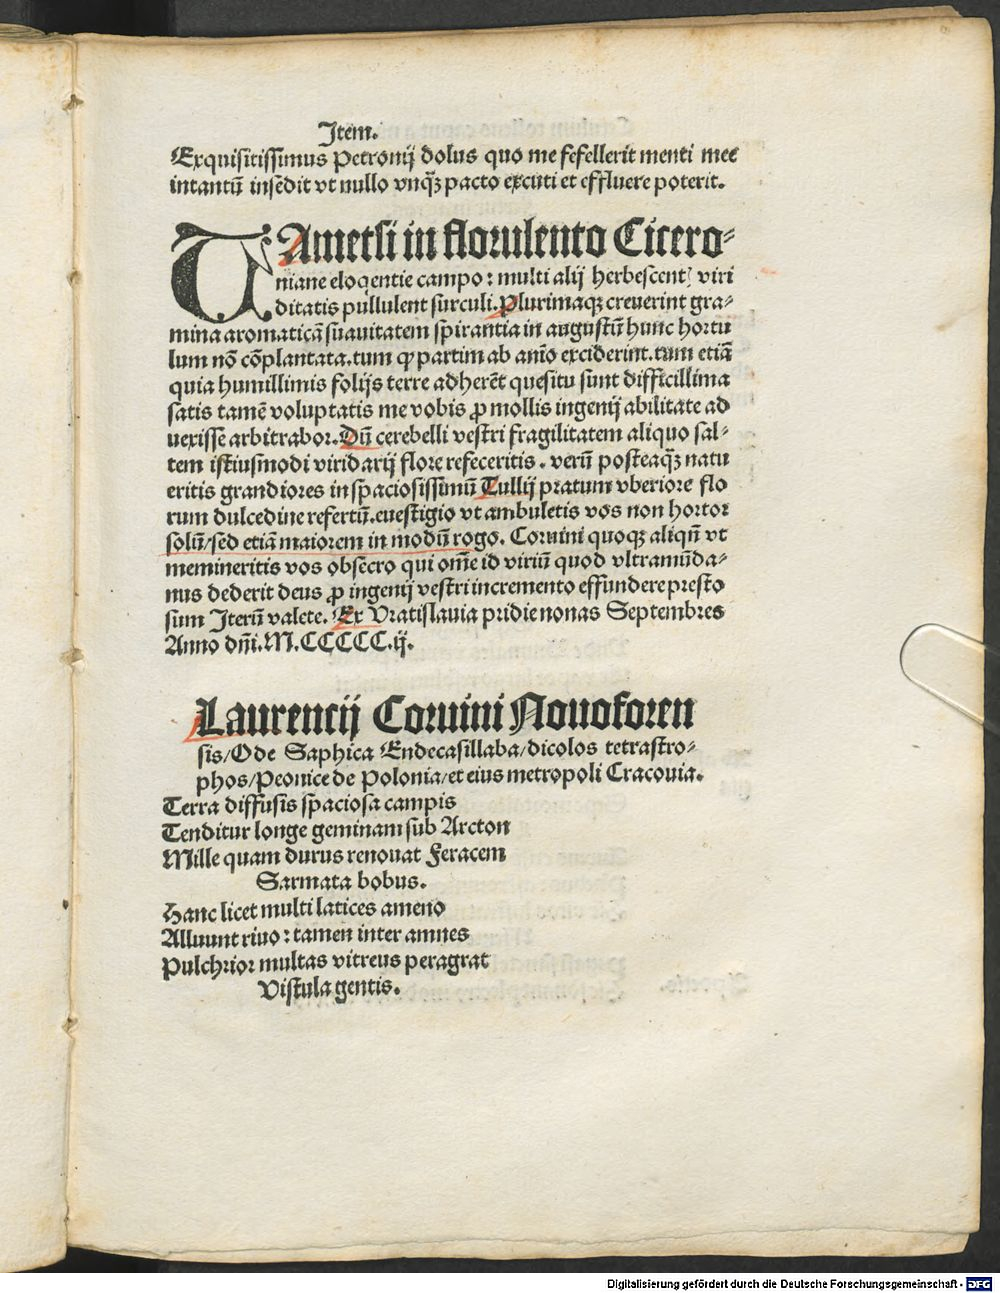 Item.
Exquisitissimus Petronij dolus quo me fefellerit menti mee
intantū insedit vt nullo vnqȝ pacto excuti et effluere poterit.
TAmetsi in florulento Cicero⸗
niane eloqentie campo: multi alij herbescent) viri
ditatis pullulent surculi. Plurimaqꝫ creuerint gra⸗
mina aromaticā suauitatem spirantia in augustū hunc hortu
lum nō cōplantata. tum ꝙ partim ab anīo exciderint. tum etiā
quia humillimis folijs terre adherēt quesitu sunt difficillima
satis tamē voluptatis me vobis ꝓ mollis ingenij abilitate ad
uexisse arbitrabor. Dū cerebelli vestri fragilitatem aliquo sal⸗
tem istiusmodi viridarij flore refeceritis. verū posteaqȝ natu
eritis grandiores in spaciosissimū Tullij pratum vberiore flo
rum dulcedine refertū. euestigio vt ambuletis vos non hortor
solū/ sed etiā maiorem in modū rogo. Coruini quoqꝫ aliqn̄ vt
memineritis vos obsecro qui om̄e id viriū quod vltramūda⸗
nus dederit deus ꝓ ingenij vestri incremento effundere presto
sum Iterū valete. Ex Vratislauia pridie nonas Septembres
Anno dn̄i. M.CCCCC.ij.
Laurencij Coruini Nouoforen
sis/ Ode Saphica Endecasillaba/ dicolos tetrastro⸗
phos/ Peonice de Polonia/ et eius metropoli Cracouia.
Terra diffusis spaciosa campis
Tenditur longe geminam sub Arcton
Mille quam durus renouat Feracem
Sarmata bobus.
Hanc licet multi latices ameno
Alluunt riuo: tamen inter amnes
Pulchrior multas vitreus peragrat
Vistula gentis.
Digitalisierung gefördert durch die Deutsche Forschungsgemeinschaft - DFG